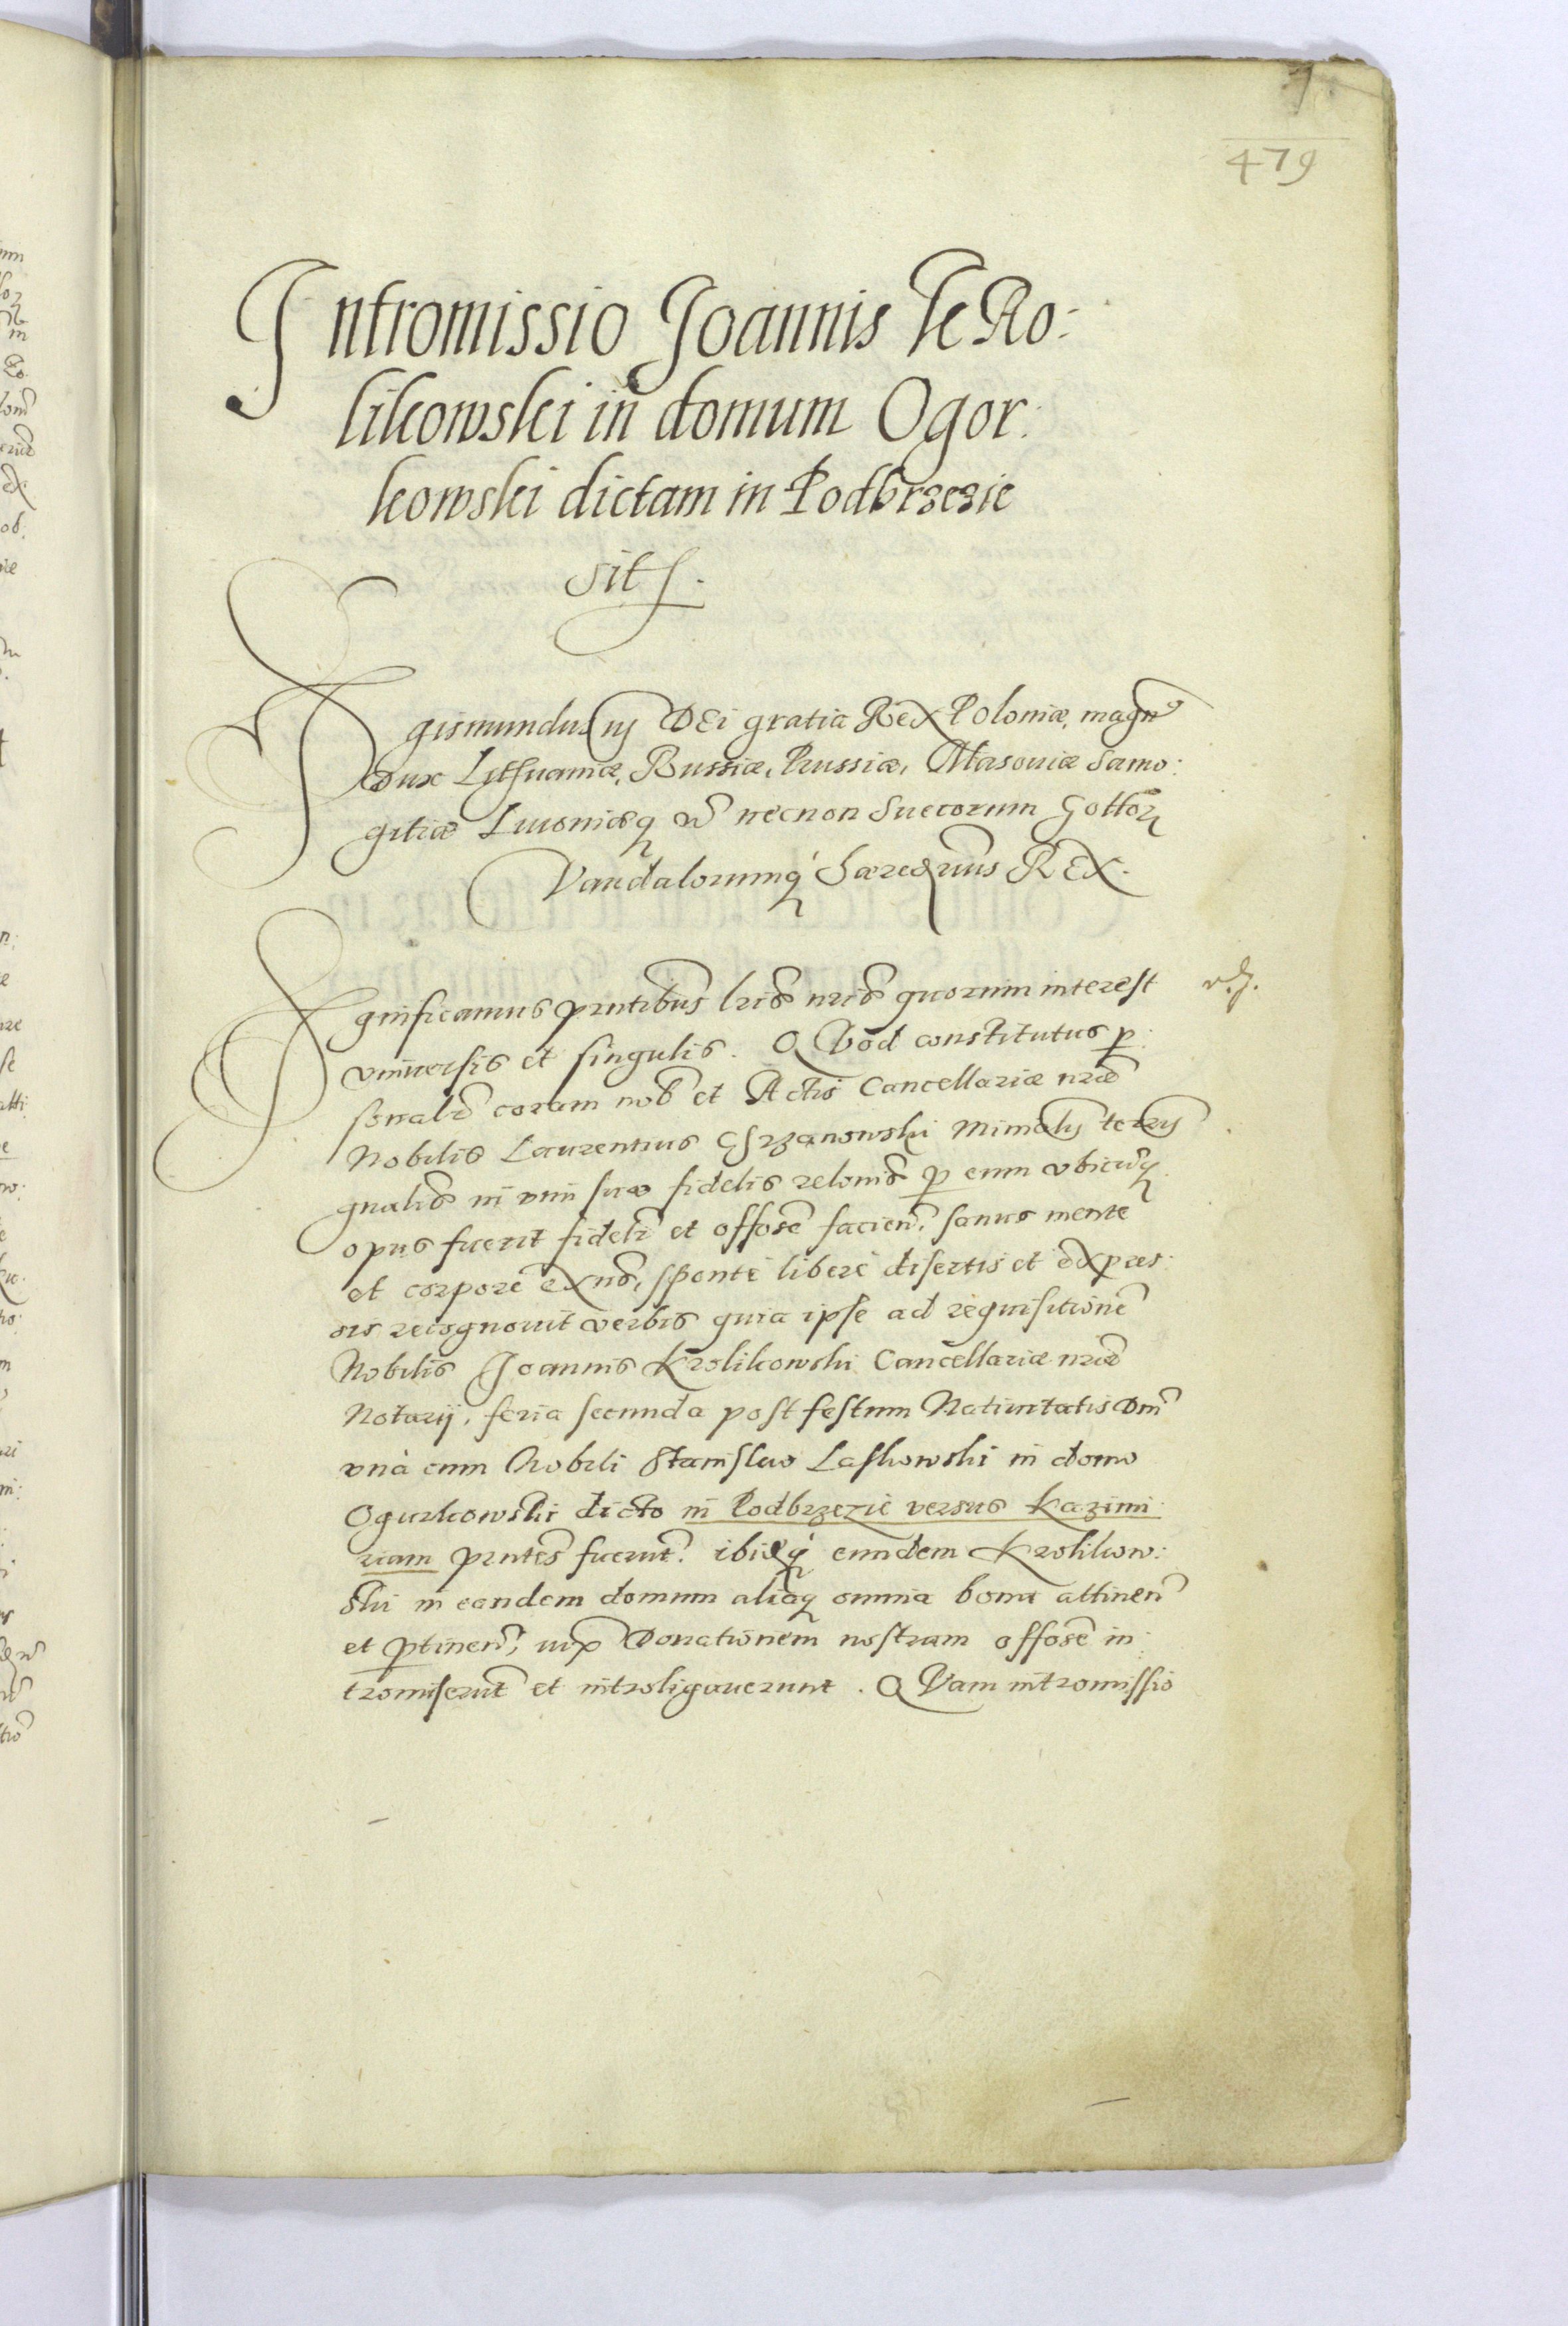 479
Intromissio Joannis Kro:
likowski in domum Ogor:
kowski dictam in Podbrzezie
sit.
Sigismundus iij DEi gratia REX Poloniæ, magn9
Dux Lithuaniæ, Russiæ, Prussiæ, Masouiæ Samo:
gitiæ Liuoniæq3 &c necnon Suecorum Gottor
Vandalorumq3 hæredrius REX.
Significamus pntibus lris nris quorum interest
vniuersis et singulis. QVod constitutus p:
sonalr coram nob et Actis Cancellariæ nræ
Nobilis Laurentius Chrzanowski Ministlis terrs
gnalis in vim suæ fidelis relonis p eum vbicunq3
opus fuerit fidelr et offose facien. sanus mente
et corpore exns, sponte libere disertis et expres:
sis recognouit verbis quia ipse ad requisitione
Nobilis Joannis Krolikowski Cancellariæ nræ
Notarij, feria secunda post festum Natiuitatis Dni
vnà cum Nobili Stanislao Laskowski in domo
Ogurkowski dicto in Podbrzezie versus Kazimi:
riam pntes fuerut. ibidq3 eundem Krolikow:
ski in eandem domum aliaq3 omnia bona attinen
et ptinen, iuxa Donationem nostram offose in:
tromiserut et introligauerunt. QVam intromissio